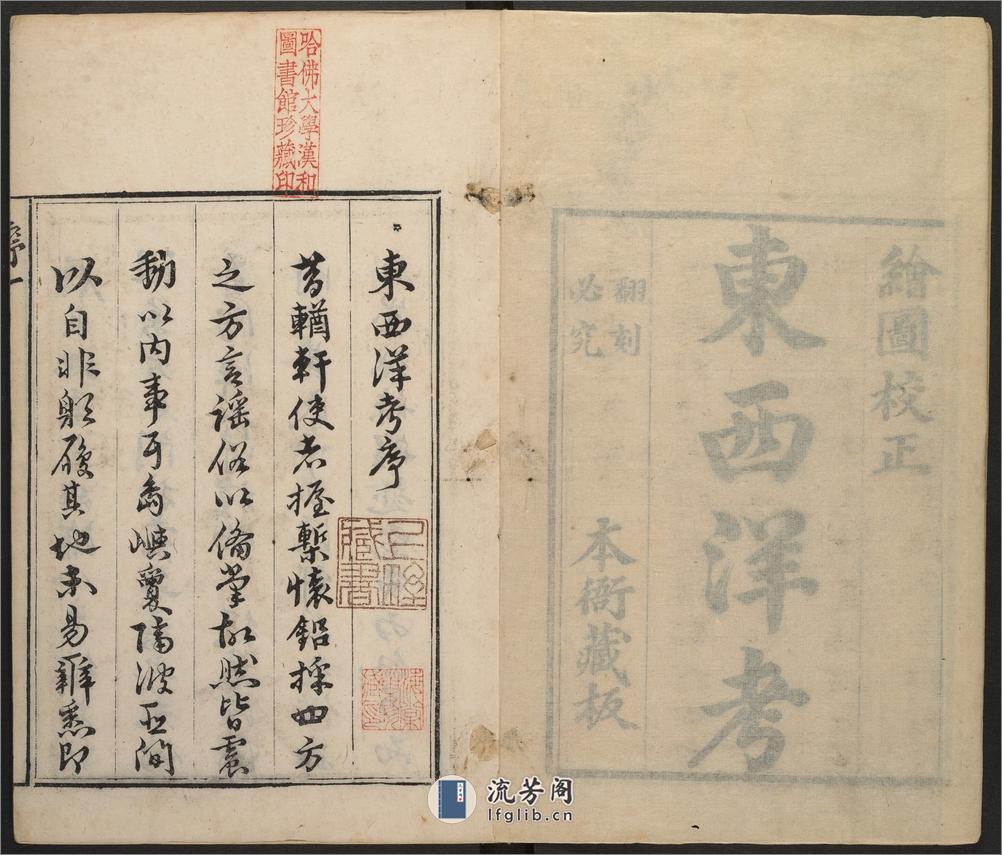 繪圖校正
東西洋考
翻刻
必究
本衙藏板
哈佛大學漢和
圖書館珍藏印
東西洋考序
昔輶軒使者握槧懷鉛採四方
之方言謠俗以備掌故然皆震
動以内事耳島嶼夐隔波間
以自非躬履其地未易難悉即
序一
藏書
流芳阁
lfglib.cn